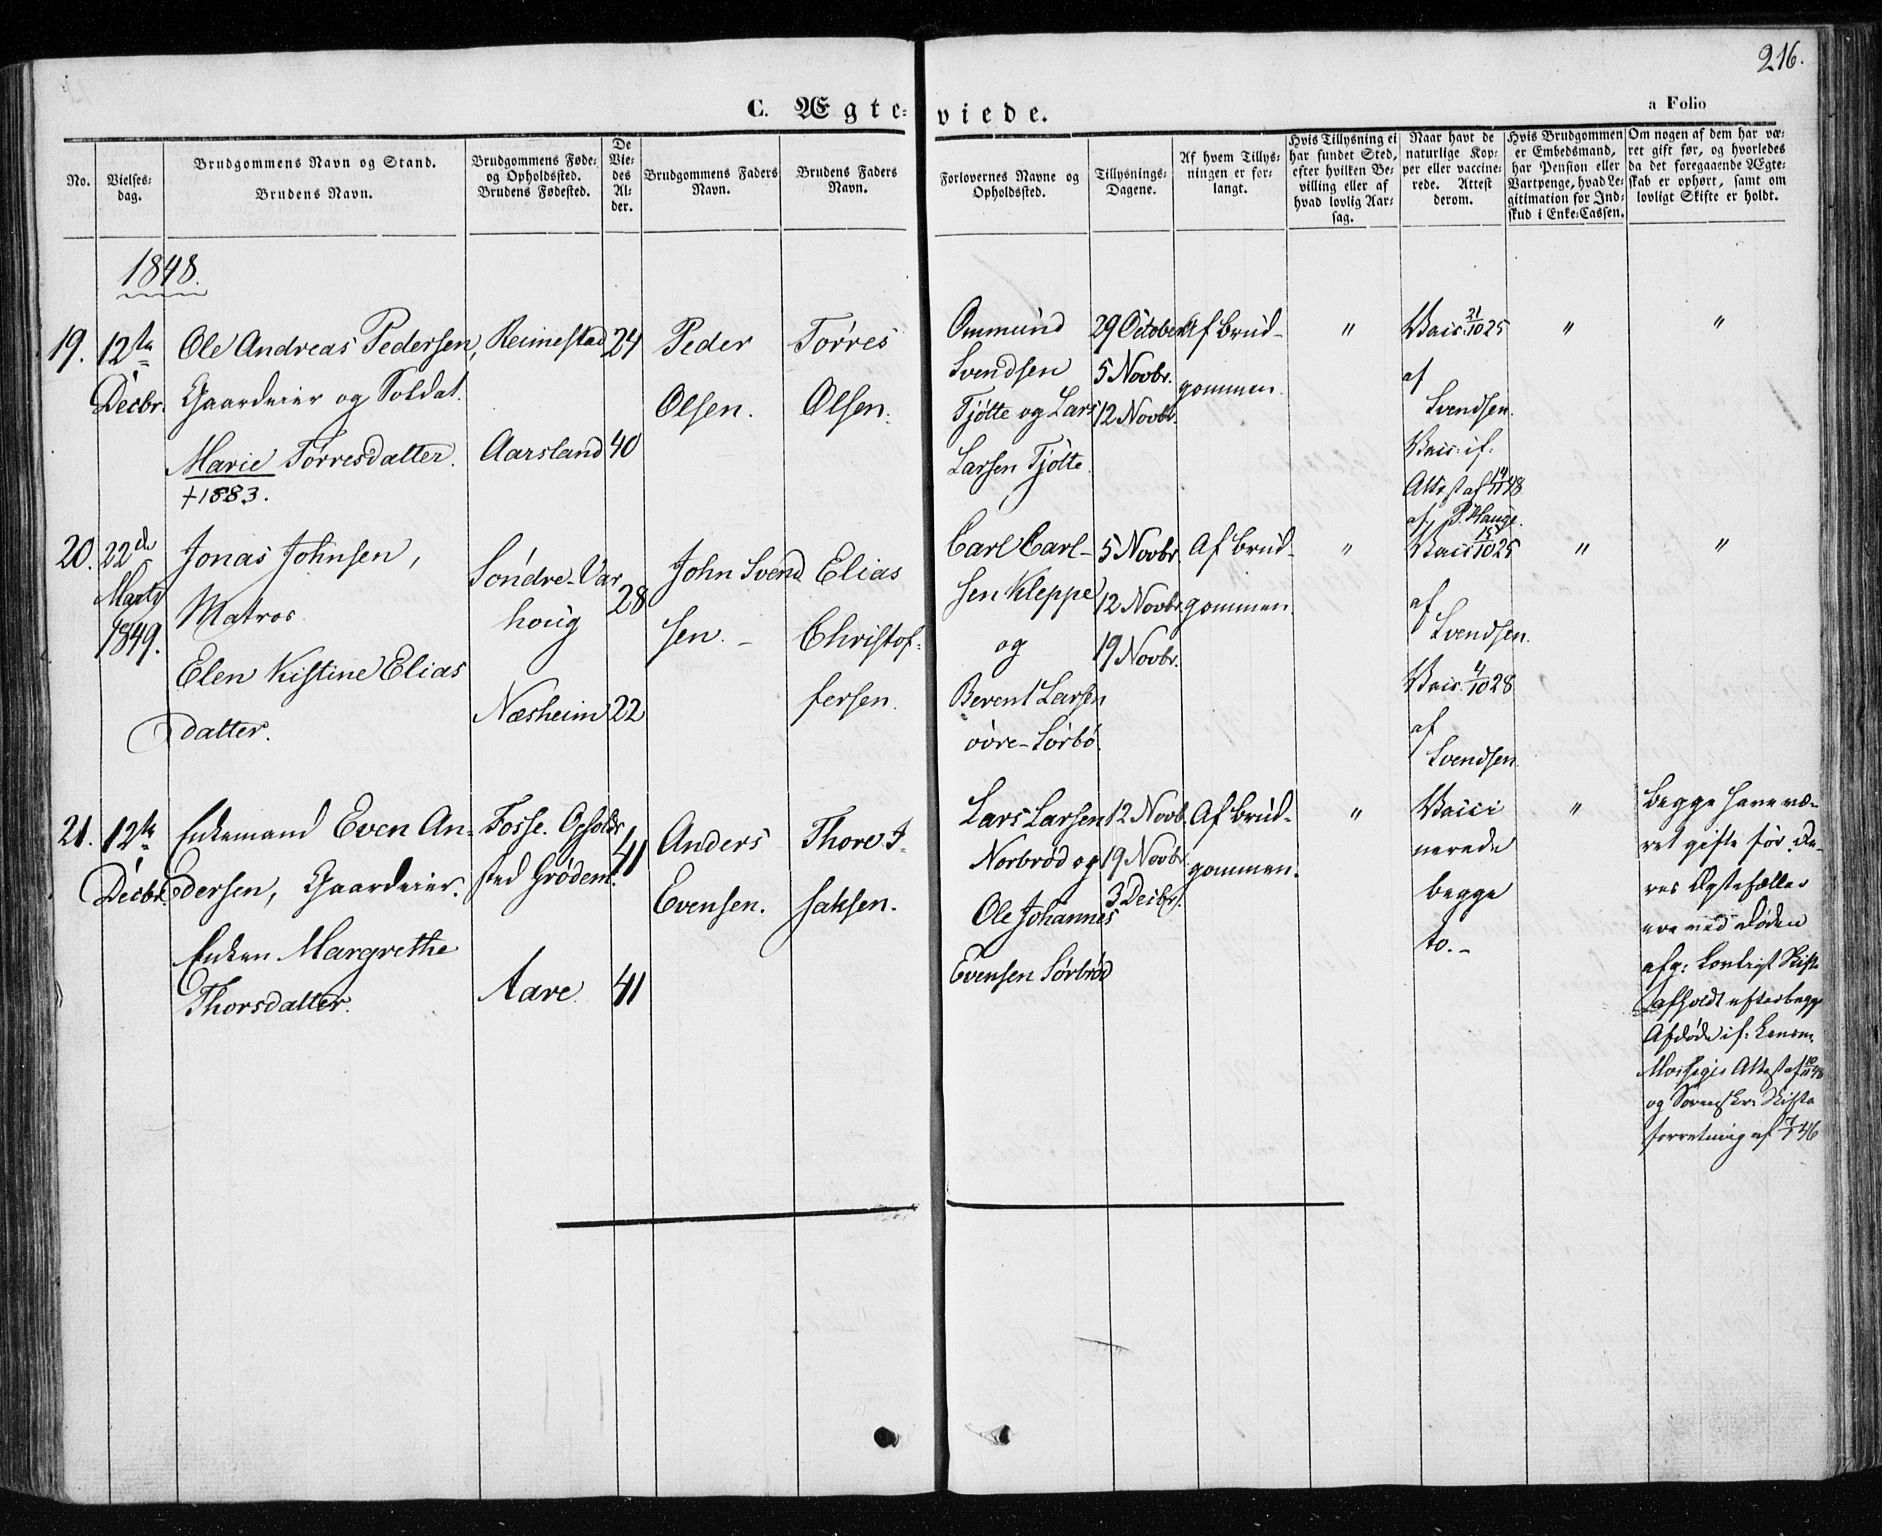 216.
C. Ægte-
viede.
a Folio
No.
Vielses-
dag.
Brudgommens Navn og Stand.
Brudens Navn.
Brudgommens Føde-
og Opholdssted.
Brudens Fødested.
De
Vie-
des
Al-
der.
Brudgommens Faders
Navn.
Brudens Faders
Navn.
Forlovernes Navne og
Opholdssted.
Tillysnings-
Dagene.
Af hvem Tillys-
ningen er for-
langt.
Hvis Tillysning ei
har fundet Sted,
efter hvilken Be-
villing eller af
hvad lovlig Aar-
sag.
Naar havt de
naturlige Kop-
per eller vaccine-
rede. Attest
derom.
Hvis Brudgommen
er Embedsmand,
har Pension eller
Vartpenge, hvad Le-
gitimation for Ind-
skud i Enke-Cassen.
Om nogen af dem har væ-
ret gift før, og hvorledes
da det foregaaende Ægte-
skab er ophørt, samt om
lovligt Skifte er holdt.
1848.
19.
12te
Decbr.
Ole Andreas Pedersen,
Gaardeier og Soldat.
Marie Tørresdatter.
+1883.
Reimestad
Aarsland
24
40
Peder
Olsen.
Tørres
Olsen.
Ommund
Svendsen
Tjøtte og Lars
Larsen Tjøtte.
29 October
5 Novbr.
12 Novbr.
Af Brud-
gommen.
"
Vacc. 21/10 25
af
Svendsen.
Vacc: if:
Attest af 48
af P. Hauge.
"
"
20.
22de
Marts
1849.
Jonas Johnsen,
Matros.
Elen Kistine Elias
datter.
Søndre-Var
houg
Næsheim
28
22
John Svend
sen. -
Elias
Christof-
fersen.
Carl Carl-
sen Kleppe
og
Berent Larsen
øvre-Sørbø.
5 Novbr.
12 Novbr.
19 Novbr.
Af Brud-
gommen.
"
Vacc 15/10 25
af
Svendsen.
Vacc. 4/10 28
af
Svendsen.
"
"
21.
12te
Decbr.
Enkemand Even An-
dersen, Gaardeier.
Enken Margrethe
Thorsdatter.
Fosse. Opholds
sted Grødem.
Aare.
41
41
Anders
Evensen.
Thore I-
saksen.
Lars Larsen
Norbrød og
Ole Johannes
Evensen Sørbrød
12 Novb.
19 Novbr.
3 Decbr.
Af Brud-
gommen.
"
Vacci
nerede
begge
to. -
"
Begge have væ-
ret gifte før. De-
res Ægtefæller
ere ved Døden
afg: Lovligt Skifte
afholdt efter begge
Afdøde if:
Attest af 48
og Skifte
forretning af 46